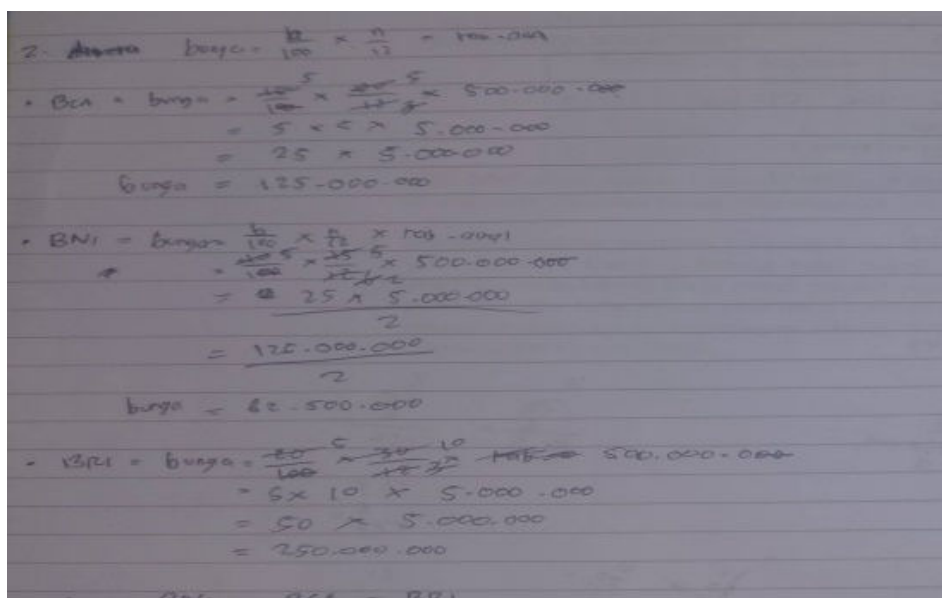 2. bunga = b/100 × n/12 =
• BCA = bunga = /100 5 × /12 5 × 500.000.000
= 5 × 5 × 5.000.000
= 25 × 5.000.000
bunga = 125.000.000
• BNI = bunga = b/100 × n/12 ×
= /100 5 × 25/12 5 2 × 500.000.000
= 25 × 5.000.000
2
= 125.000.000
2
bunga = 62.500.000
• BRI = bunga = 20/100 5 × 30/12 10 × 500.000.000
= 5 × 10 × 5.000.000
= 50 × 5.000.000
= 250.000.000